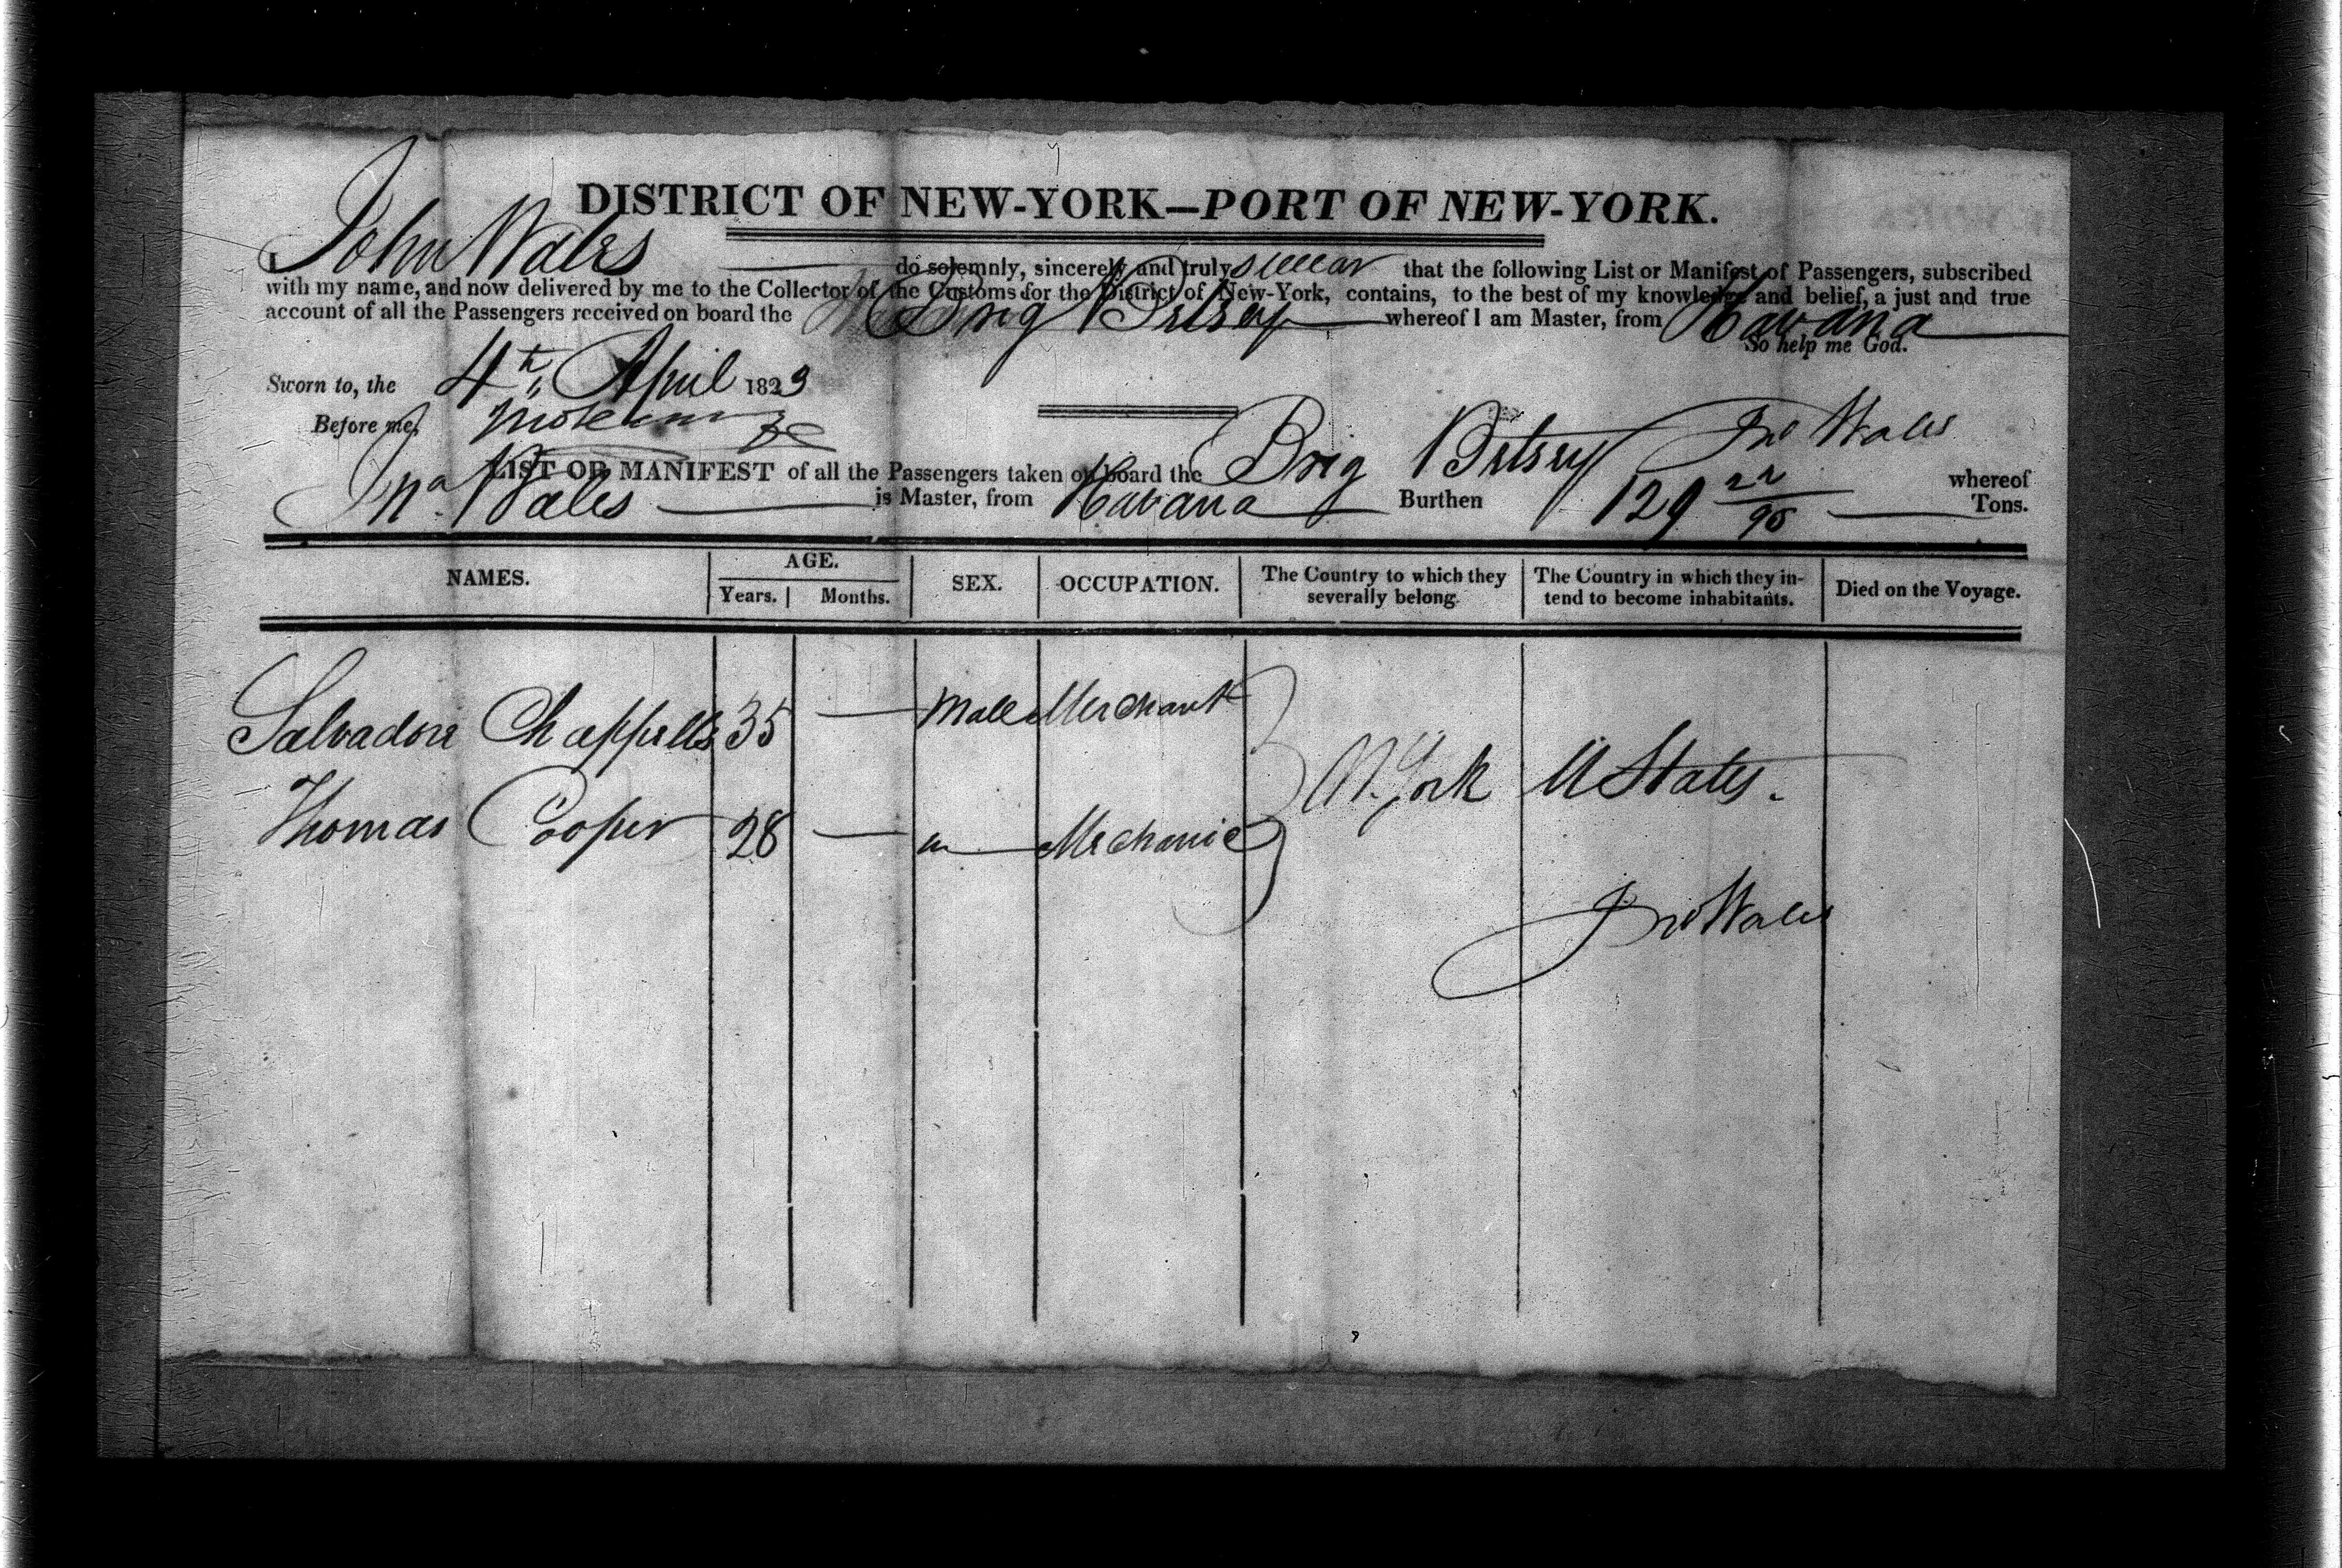 DISTRICT OF NEW-YORK—PORT OF NEW-YORK.
I, John Wales do solemnly, sincerely and truly swear that the following List or Manifest of Passengers, subscribed
with my name, and now delivered by me to the Collector of the Customs for the District of New-York, contains, to the best of my knowledge and belief, a just and true
account of all the Passengers received on board the Brig Betsey whereof I am Master, from Havana
So help me God.
Sworn to, the 4th April 1823
Before me,
Jno Wales
LIST OR MANIFEST of all the Passengers taken on board the Brig Betsey whereof
Jno. Wales is Master, from Havana Burthen 129 22/95 Tons.
NAMES. AGE. SEX. OCCUPATION. The Country to which they severally belong. The Country in which they intend to become inhabitants. Died on the Voyage.
Years. Months.
Salvadore Chappells 35 — Male Merchant
N. York U States.
Thomas Cooper 28 — m Mechanic
Jno Wales